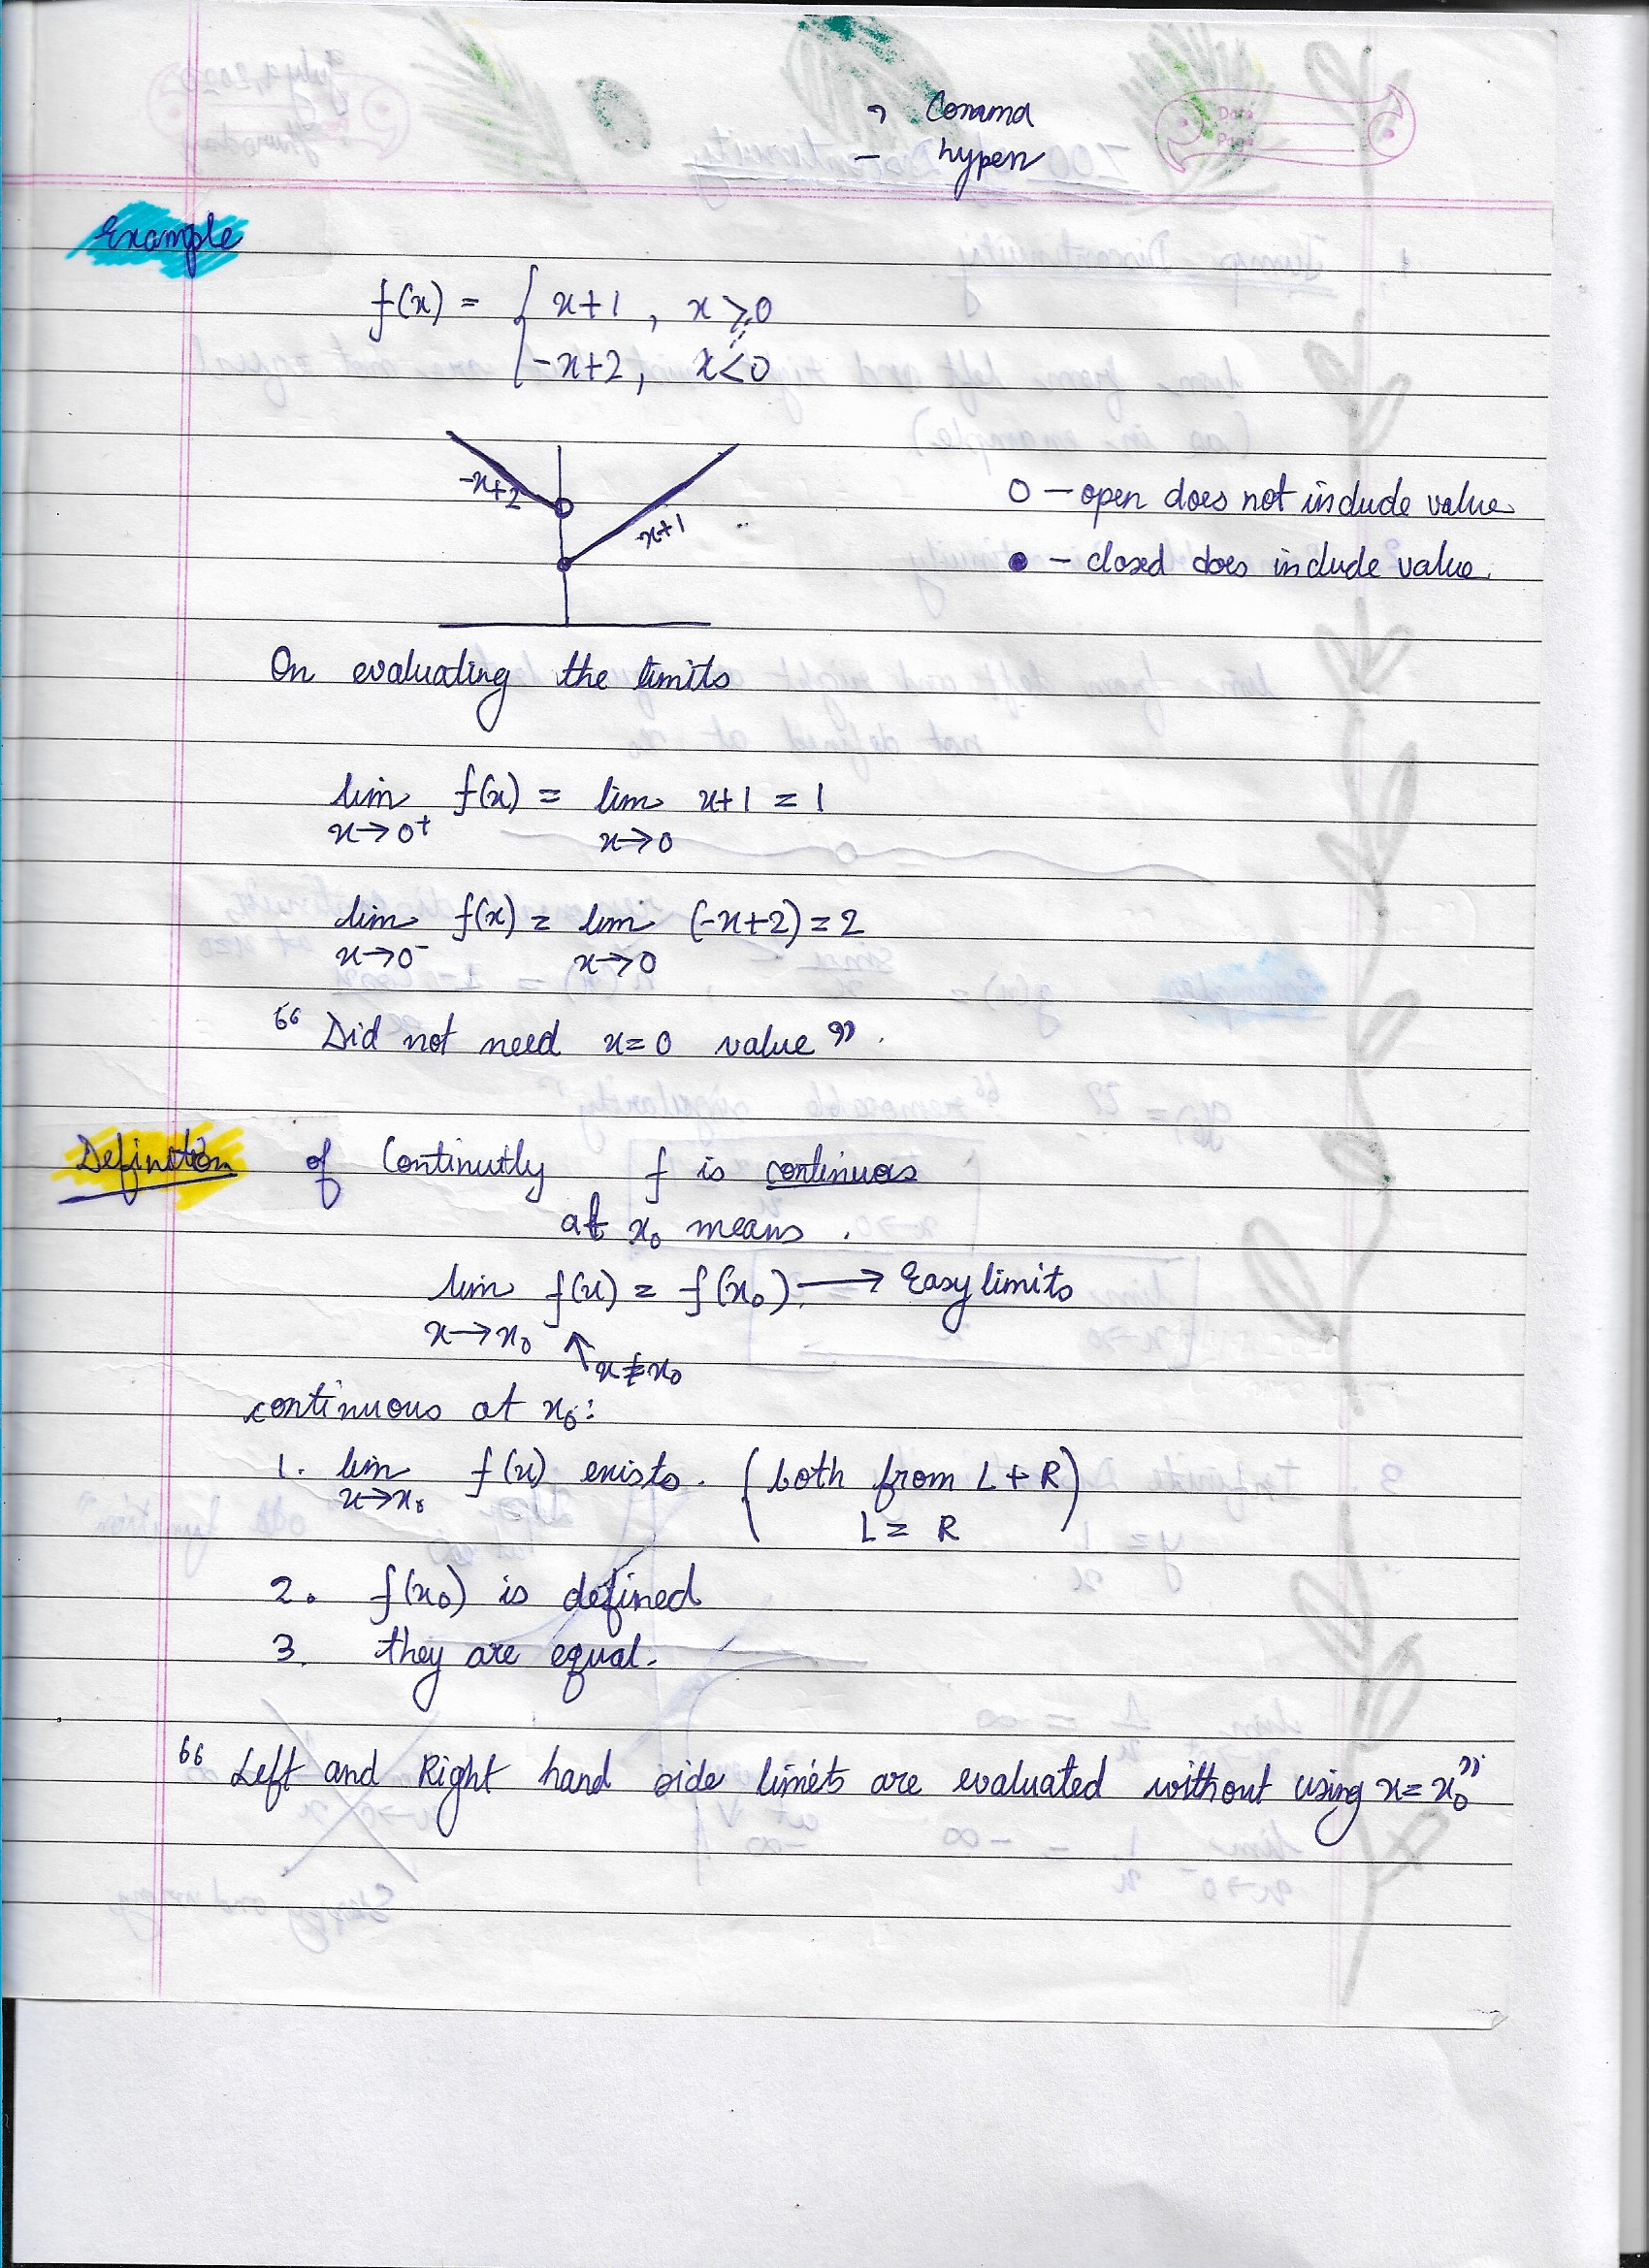 , Comma
– hypen
Date
Page
Example
f(x) = { x+1 , x ≥ 0
-x+2, x<0
-x+2
x+1
○ – open does not include value
● – closed does include value.
On evaluating the limits
lim f(x) = lim x+1 = 1
x→0⁺ x→0
lim f(x) = lim (-x+2) = 2
x→0⁻ x→0
“ Did not need x=0 value ” .
Definition of Continutly f is continuos
at x₀ means .
lim f(x) = f(x₀). → Easy limits
x→x₀ ↑ x≠x₀
continuous at x₀:
1. lim f(x) exists. (both from L + R)
x→x₀ L = R
2. f(x₀) is defined
3. they are equal.
“ Left and Right hand side limits are evaluated without using x= x₀”